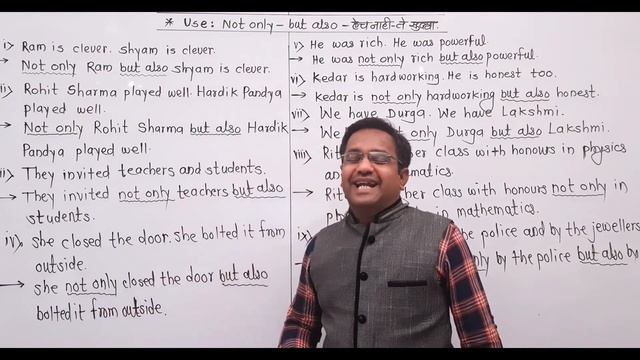 * Use: Not only – but also – हेच नाही-ते सुद्धा.
i) Ram is clever. Shyam is clever.
→ Not only Ram but also Shyam is clever.
ii) Rohit Sharma played well. Hardik Pandya
played well.
→ Not only Rohit Sharma but also Hardik
Pandya played well.
ii) They invited teachers and students.
→ They invited not only teachers but also
students.
iv) She closed the door. She bolted it from
outside.
→ She not only closed the door but also
bolted it from outside.
v) He was rich. He was powerful
→ He was not only rich but also powerful.
vi) Kedar is hardworking. He is honest too.
→ kedar is not only hardworking but also honest.
vii) We have Durga. We have Lakshmi.
→ We only Durga but also Lakshmi.
viii) class with honours in physics
→ class with honours not only in
in mathematics.
ix) the police and by the jewellers
by the police but also by